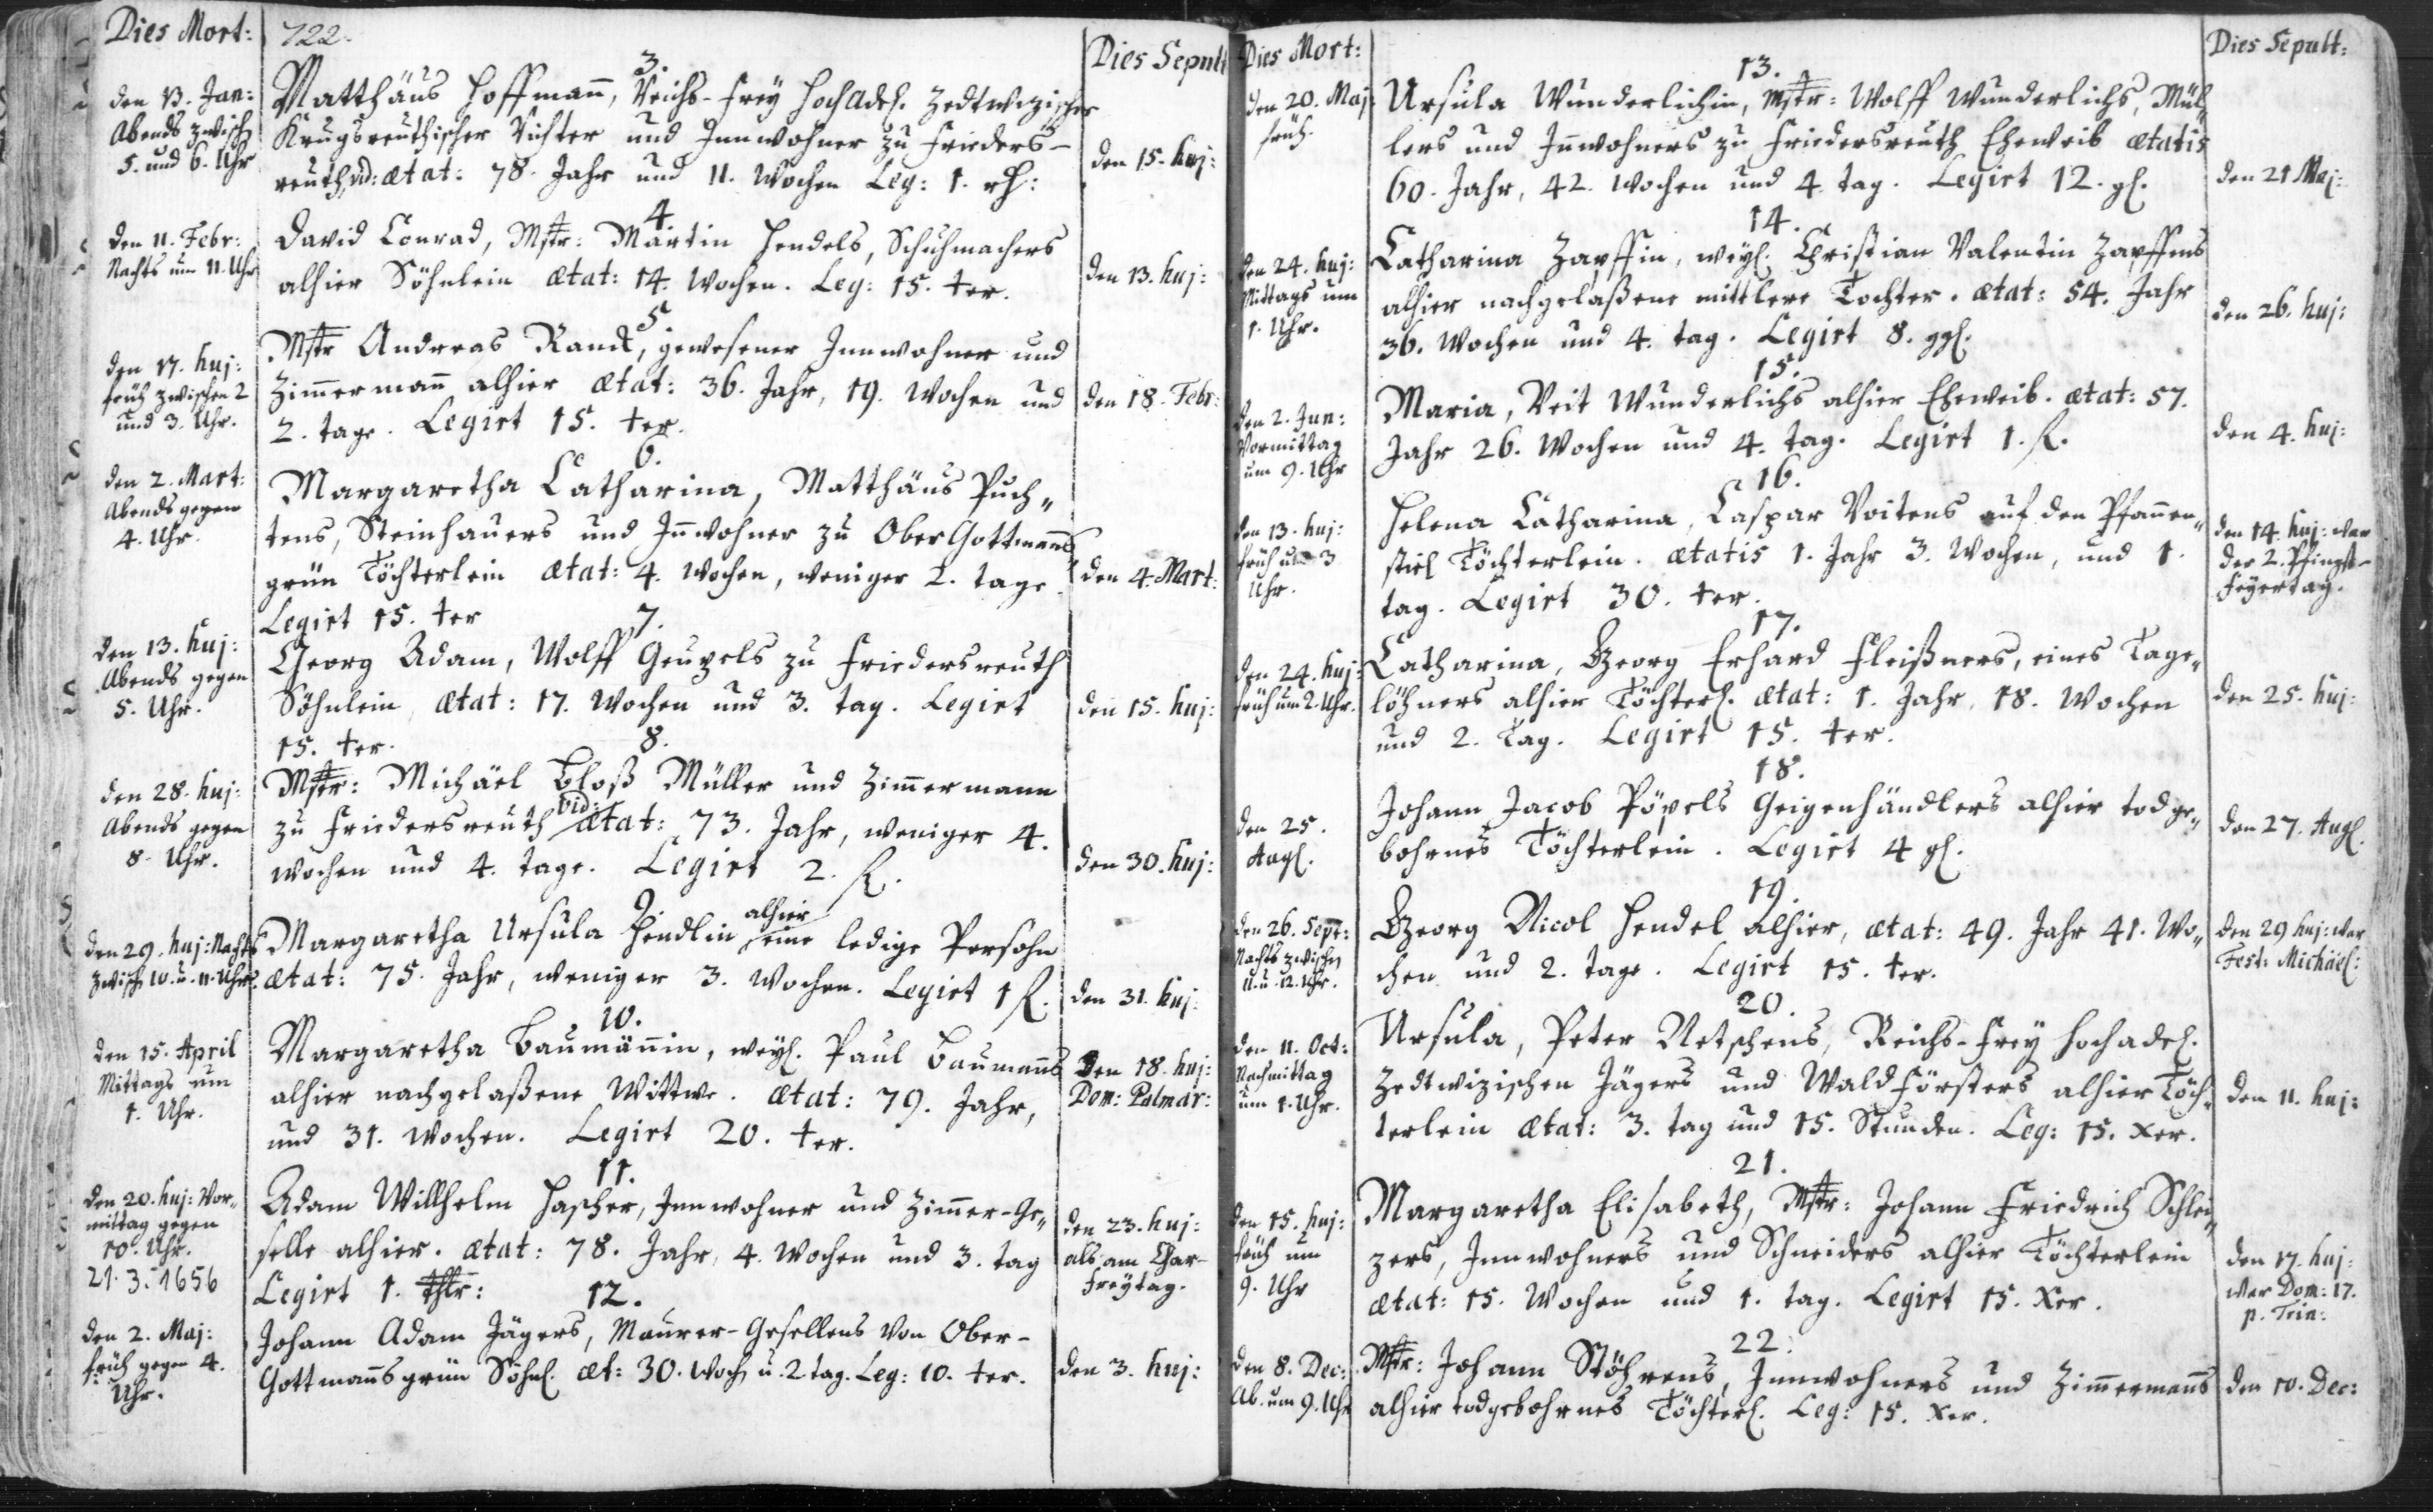 Dies Mort:
722.
Dies Sepult
3.
den 13. Jan:
Abends zwisch
5. und 6. Uhr
Matthäus Hoffmañ, Reichs-Frey HochAdel. Zedtwizischer
Krugsreuthischer Richter und Innwohner zu Frieders-
reuth, vid: ætat: 78. Jahr und 11. Wochen Leg: 1. rh:
den 15. huj:
4.
den 11. Febr:
Nachts um 11. Uhr
David Conrad, Mstr: Martin Hendels, Schuhmachers
alhier Söhnlein ætat: 14. Wochen. Leg: 15. xer.
den 13. huj:
5.
den 17. huj:
früh zwischen 2
und 3. Uhr.
Mstr Andreas Randt, gewesener Innwohner und
Zim̄ermañ alhier ætat: 36. Jahr, 19. Wochen und
2. tage. Legirt 15. xer.
den 18. Febr:
6.
den 2. Mart:
Abends gegen
4. Uhr.
Margaretha Catharina, Matthäus Puch„
tens, Steinhauers und Iñwohner zu OberGottmañs
grün Töchterlein ætat: 4. Wochen, weniger 2. tage.
Legirt 15. xer
den 4. Mart:
7.
den 13. huj:
Abends gegen
5. Uhr.
Georg Adam, Wolff Geupels zu Friedersreuth
Söhnlein, ætat: 17. Wochen und 3. tag. Legirt
15. xer.
den 15. huj:
8.
den 28. huj:
Abends gegen
8. Uhr.
Mstr: Michäel Bloß Müller und Zim̄ermann
zu Friedersreuth vid: ætat: 73. Jahr, weniger 4.
Wochen und 4. tage. Legirt 2. fl.
den 30. huj:
9.
den 29. huj: Nachts
zwisch 10. u. 11. Uhr.
Margaretha Ursula Hendlin alhier eine ledige Persohn
ætat: 75. Jahr, weniger 3. Wochen. Legirt 1 fl.
den 31. huj:
10.
den 15. April
Mittags um
1. Uhr.
Margaretha Baumäñin, weyl. Paul Baumañs
alhier nachgelaßene Wittwe. ætat: 79. Jahr,
und 31. Wochen. Legirt 20. xer.
den 18. huj:
Dom: Palmar:
11.
den 20. huj: Vor„
mittag gegen
10. Uhr.
21. 3. 1656
Adam Willhelm Hascher, Innwohner und Zim̄er-Ge„
selle alhier. ætat: 78. Jahr, 4. Wochen und 3. tag
Legirt 1. thlr:
den 23. huj:
als am Char-
Freytag.
12.
den 2. Maj:
früh gegen 4.
Uhr.
Johann Adam Jägers, Maurer-Gesellens von Ober-
Gottmañsgrün Söhnl. æt: 30. Woch u. 2 tag. Leg: 10. xer.
den 3. huj:
Dies Mort:
Dies Sepult:
13.
den 20. Maj:
früh.
Ursula Wunderlichin, Mstr: Wolff Wunderlichs, Mül„
lers und Iñwohners zu Friedersreuth Eheweib ætatis
60. Jahr, 42. Wochen und 4. tag. Legirt 12. gl.
den 21 Maj:
14.
den 24. huj:
Mittags um
1. Uhr.
Catharina Zapffin, weyl. Christian Valentin Zapffens
alhier nachgelaßene mittlere Tochter. ætat: 54. Jahr
36. Wochen und 4. tag. Legirt 8. ggl.
den 26. huj:
15.
den 2. Jun:
Vormittag
um 9. Uhr
Maria, Veit Wunderlichs alhier Eheweib. ætat: 57.
Jahr 26. Wochen und 4. tag. Legirt 1. fl.
den 4. huj:
16.
den 13. huj:
früh um 3
Uhr.
Helena Catharina, Caspar Voitens auf den Pfannen„
stiel Töchterlein. ætatis 1. Jahr 3. Wochen, und 1.
tag. Legirt 30. xer.
den 14. huj: war
der 2. Pfingst-
Feyertag.
17.
den 24. huj:
früh um 2. Uhr.
Catharina, Georg Erhard Fleißners, eines Tage„
löhners alhier Töchterl. ætat: 1. Jahr, 18. Wochen
und 2. Tag. Legirt 15. xer.
den 25. huj:
18.
den 25.
Augl.
Johann Jacob Pöpels Geigenhändlers alhier todge„
bohrnes Töchterlein. Legirt 4 gl.
den 27. Augl.
19.
den 26. Sept:
Nachts zwischen
11. u. 12. Uhr.
Georg Nicol Hendel alhier, ætat: 49. Jahr 41. Wo„
chen und 2. tage. Legirt 15. xer.
den 29 huj: war
Fest: Michäel:
20.
den 11. Oct:
Nachmittag
um 1. Uhr.
Ursula, Peter Netschens, Reichs-Frey Hochadel.
Zedtwizischen Jägers und WaldFörsters alhier Töch„
terlein ætat: 3. tag und 15. Stunden. Leg: 15. Xer.
den 11. huj:
21.
den 15. huj:
früh um
9. Uhr
Margaretha Elisabeth, Mstr: Johann Friedrich Schlei„
zers, Innwohners und Schneiders alhier Töchterlein
ætat: 15. Wochen und 1. tag. Legirt 15. Xer.
den 17. huj:
war Dom: 17.
p. Trin:
22.
den 8. Dec:
Ab. um 9. Uhr
Mstr: Johann Stöhrens, Innwohners und Zim̄ermañs
alhier todgebohrnes Töchterl. Leg: 15. Xer.
den 10. Dec: